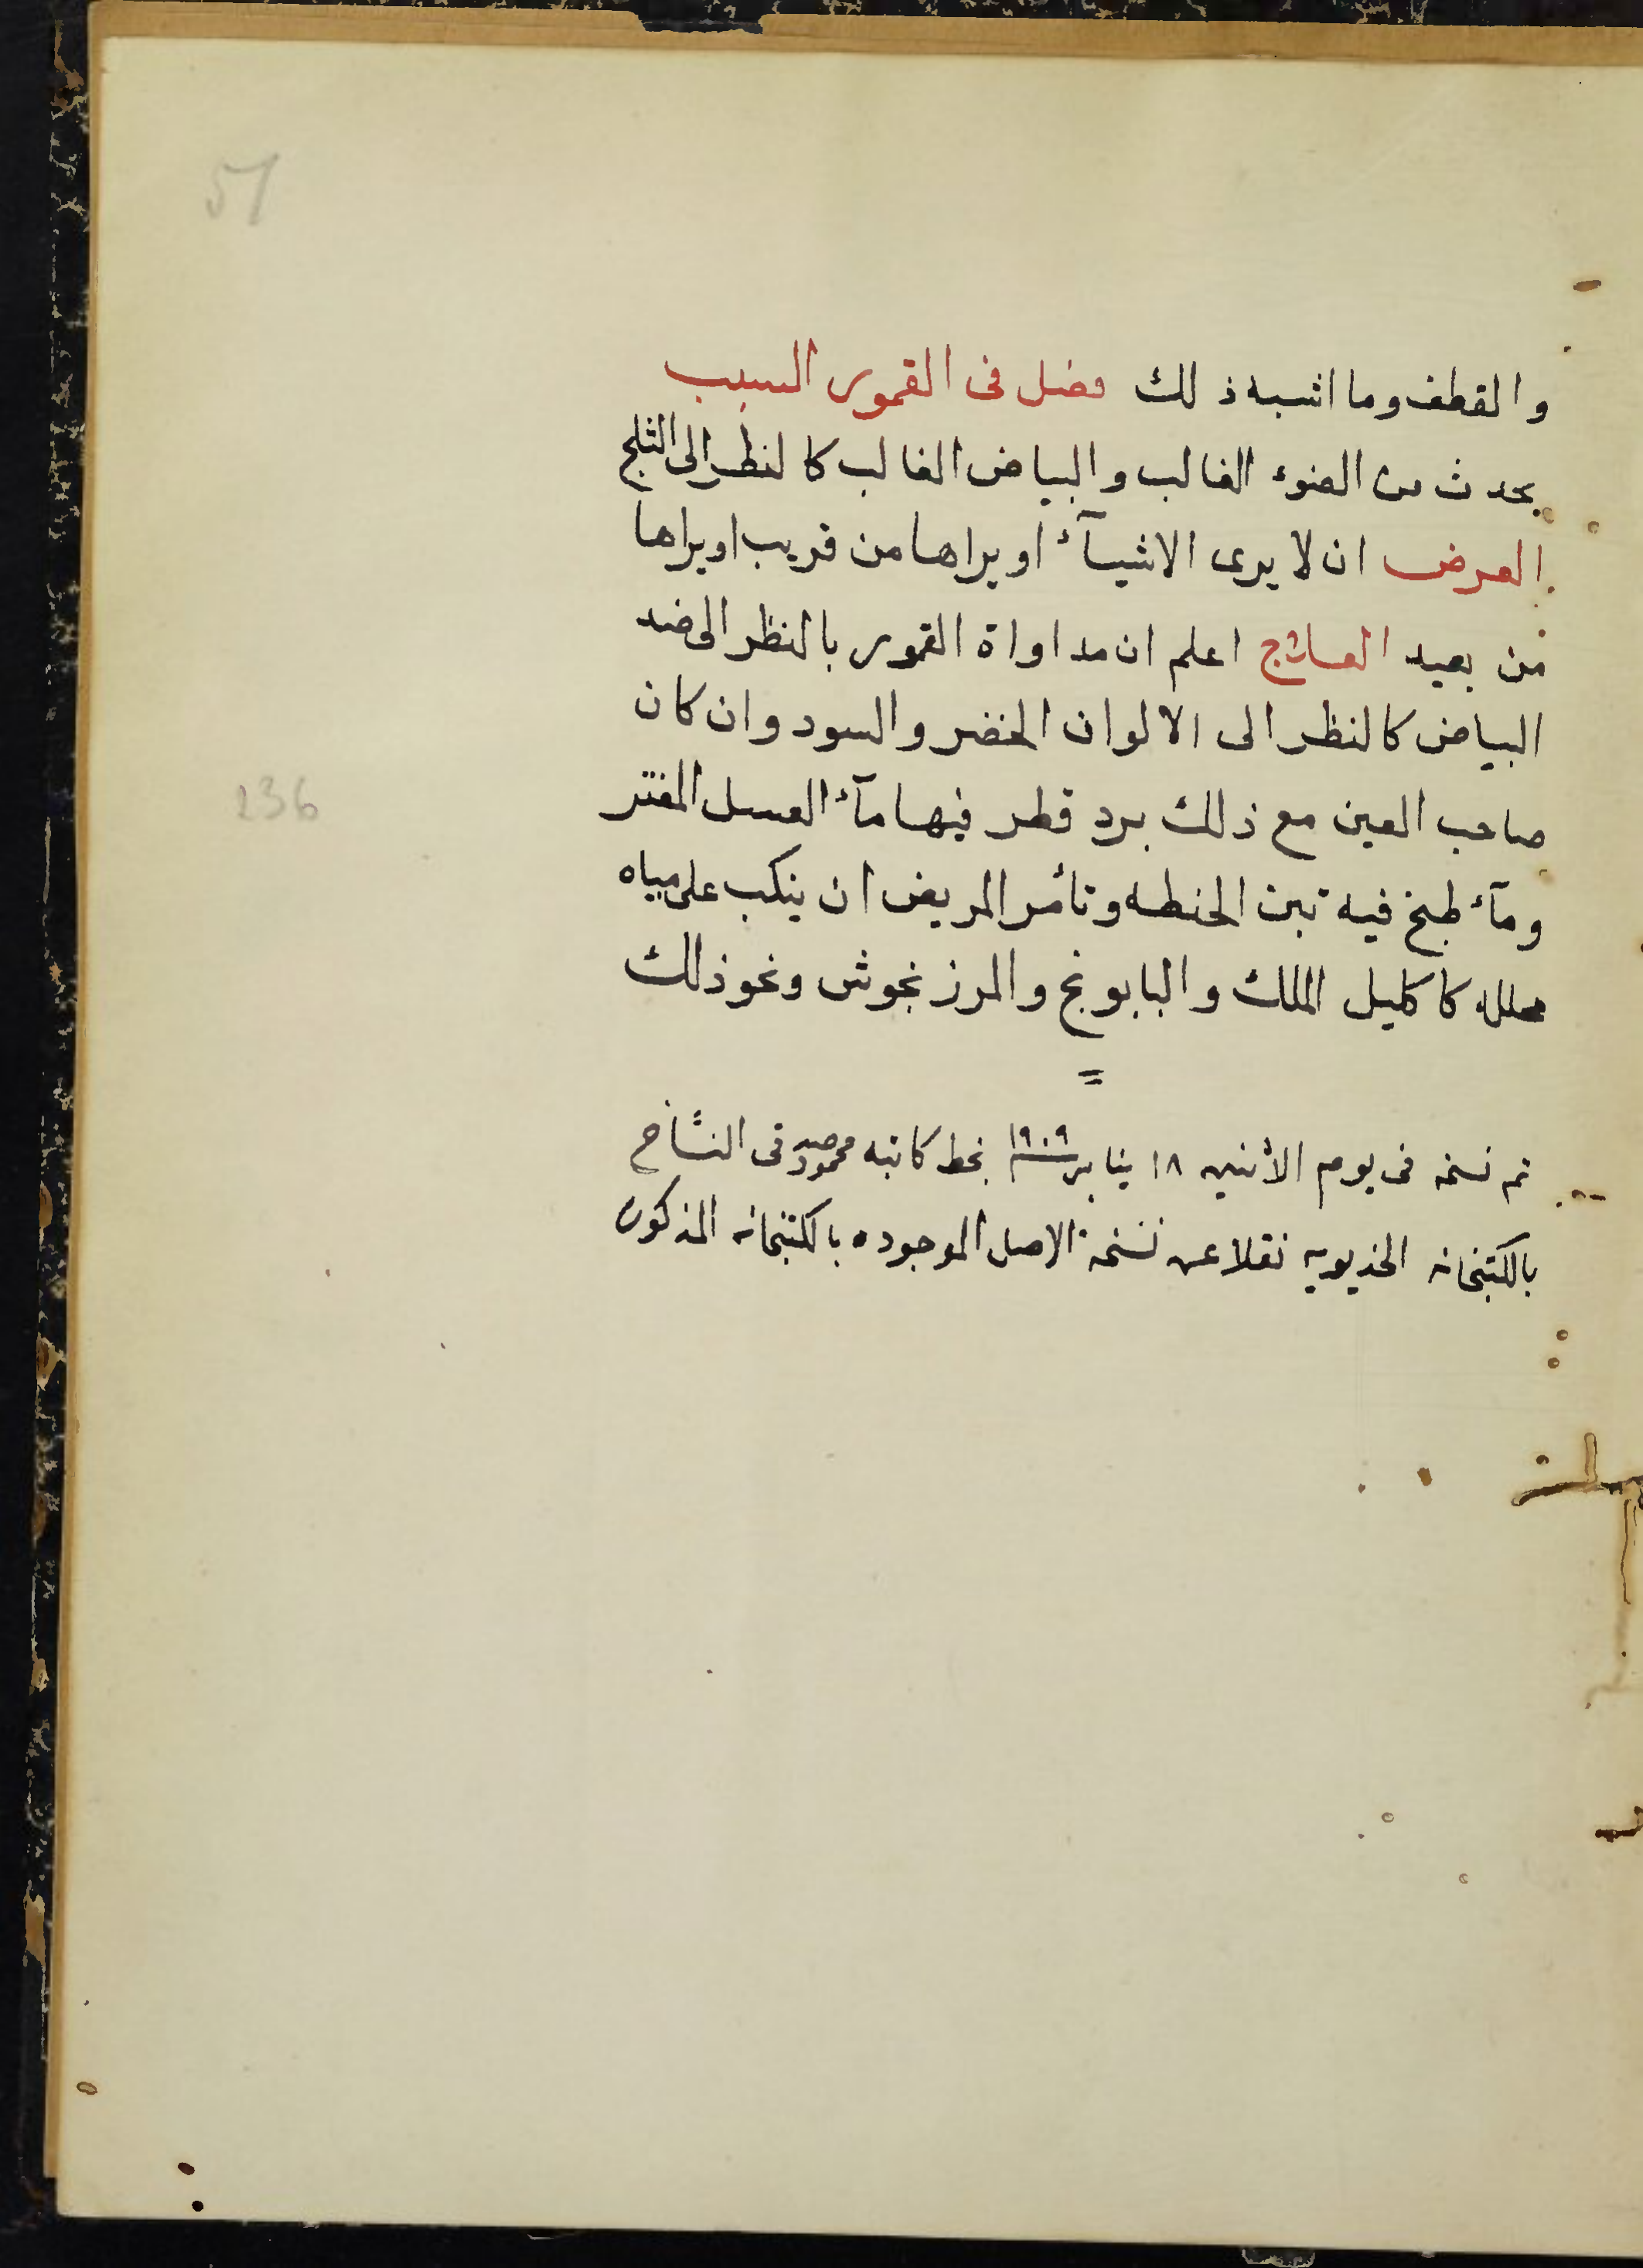 51
والقطف وما اشبه ذلك فصل فى القمور السبب
يحدث من الضوء الغالب والبياض الغالب كالنظر الى الثلج
العرض ان لا يرى الاشيآء او يراها من قريب او يراها
من بعيد العلاج اعلم ان مداواة القمور بالنظر الى ضد
البياض كالنظر الى الالوان الخضر والسود وان كان
236
صاحب العين مع ذلك برد قطر فيها مآء العسل المفتر
ومآء طبخ فيه تبن الحنطه وتأمر المريض ان ينكب على مياه
محلله كاكليل الملك والبابونج والمرزنجوش ونحو ذلك
=
تم نسخه فى يوم الأثنين ١٨ يناير سنة ١٩٠٩ بخط كاتبه محمود صدقى النساخ
بالكتبخانه الخديويه نقلا عن نسخة الاصل الموجوده بالكتبخانه المذكوره